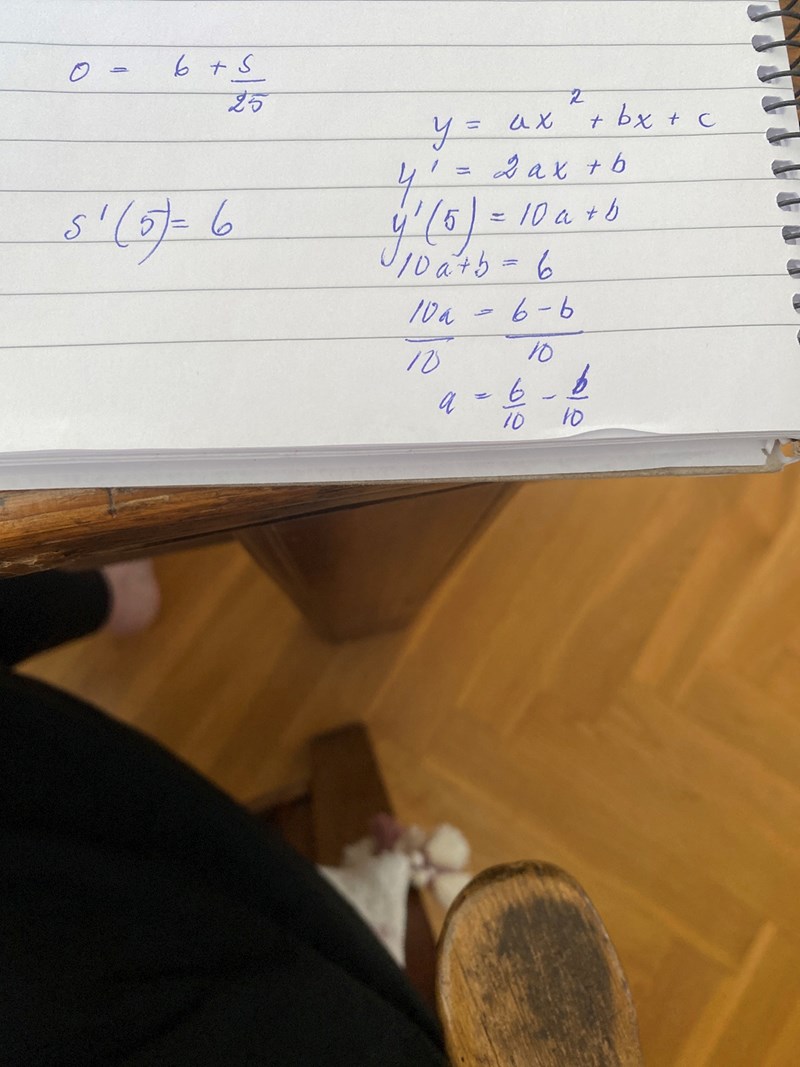 0 = 6 + s/25
y = ax² + bx + c
y' = 2ax + b
s'(5) = 6
y'(5) = 10a + b
10a + b = 6
10a/10 = 6 - b/10
a = 6/10 - b/10